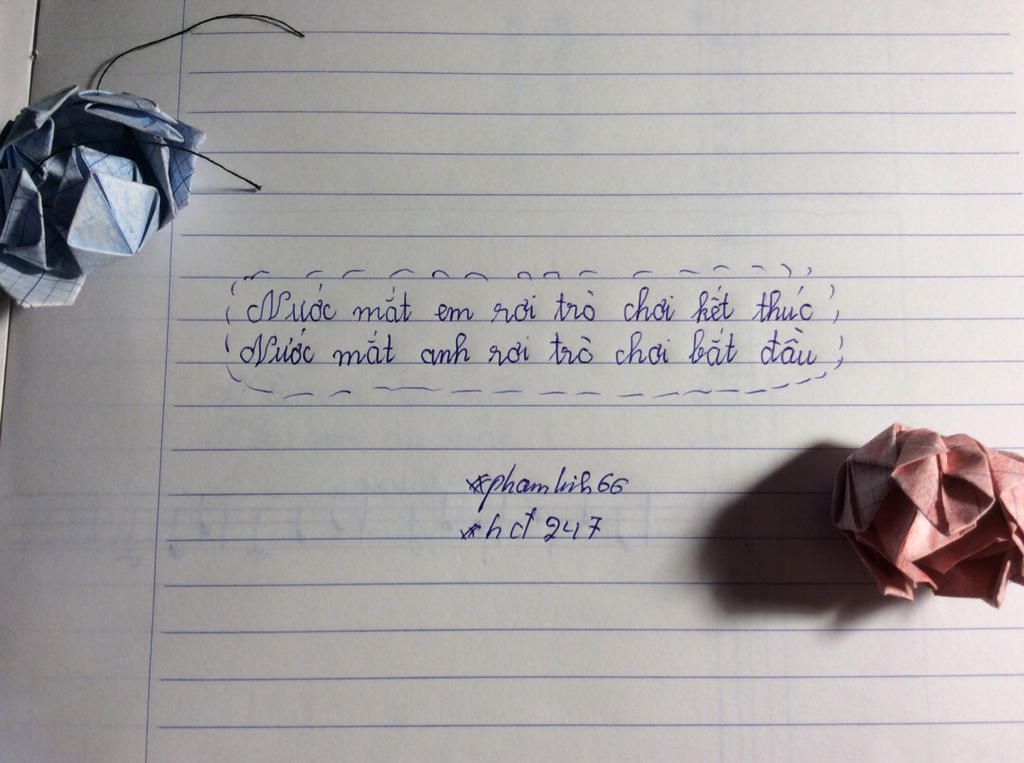 Nước mắt em rơi trò chơi kết thúc
Nước mắt anh rơi trò chơi bắt đầu
*phamlinh66
*hđ 247